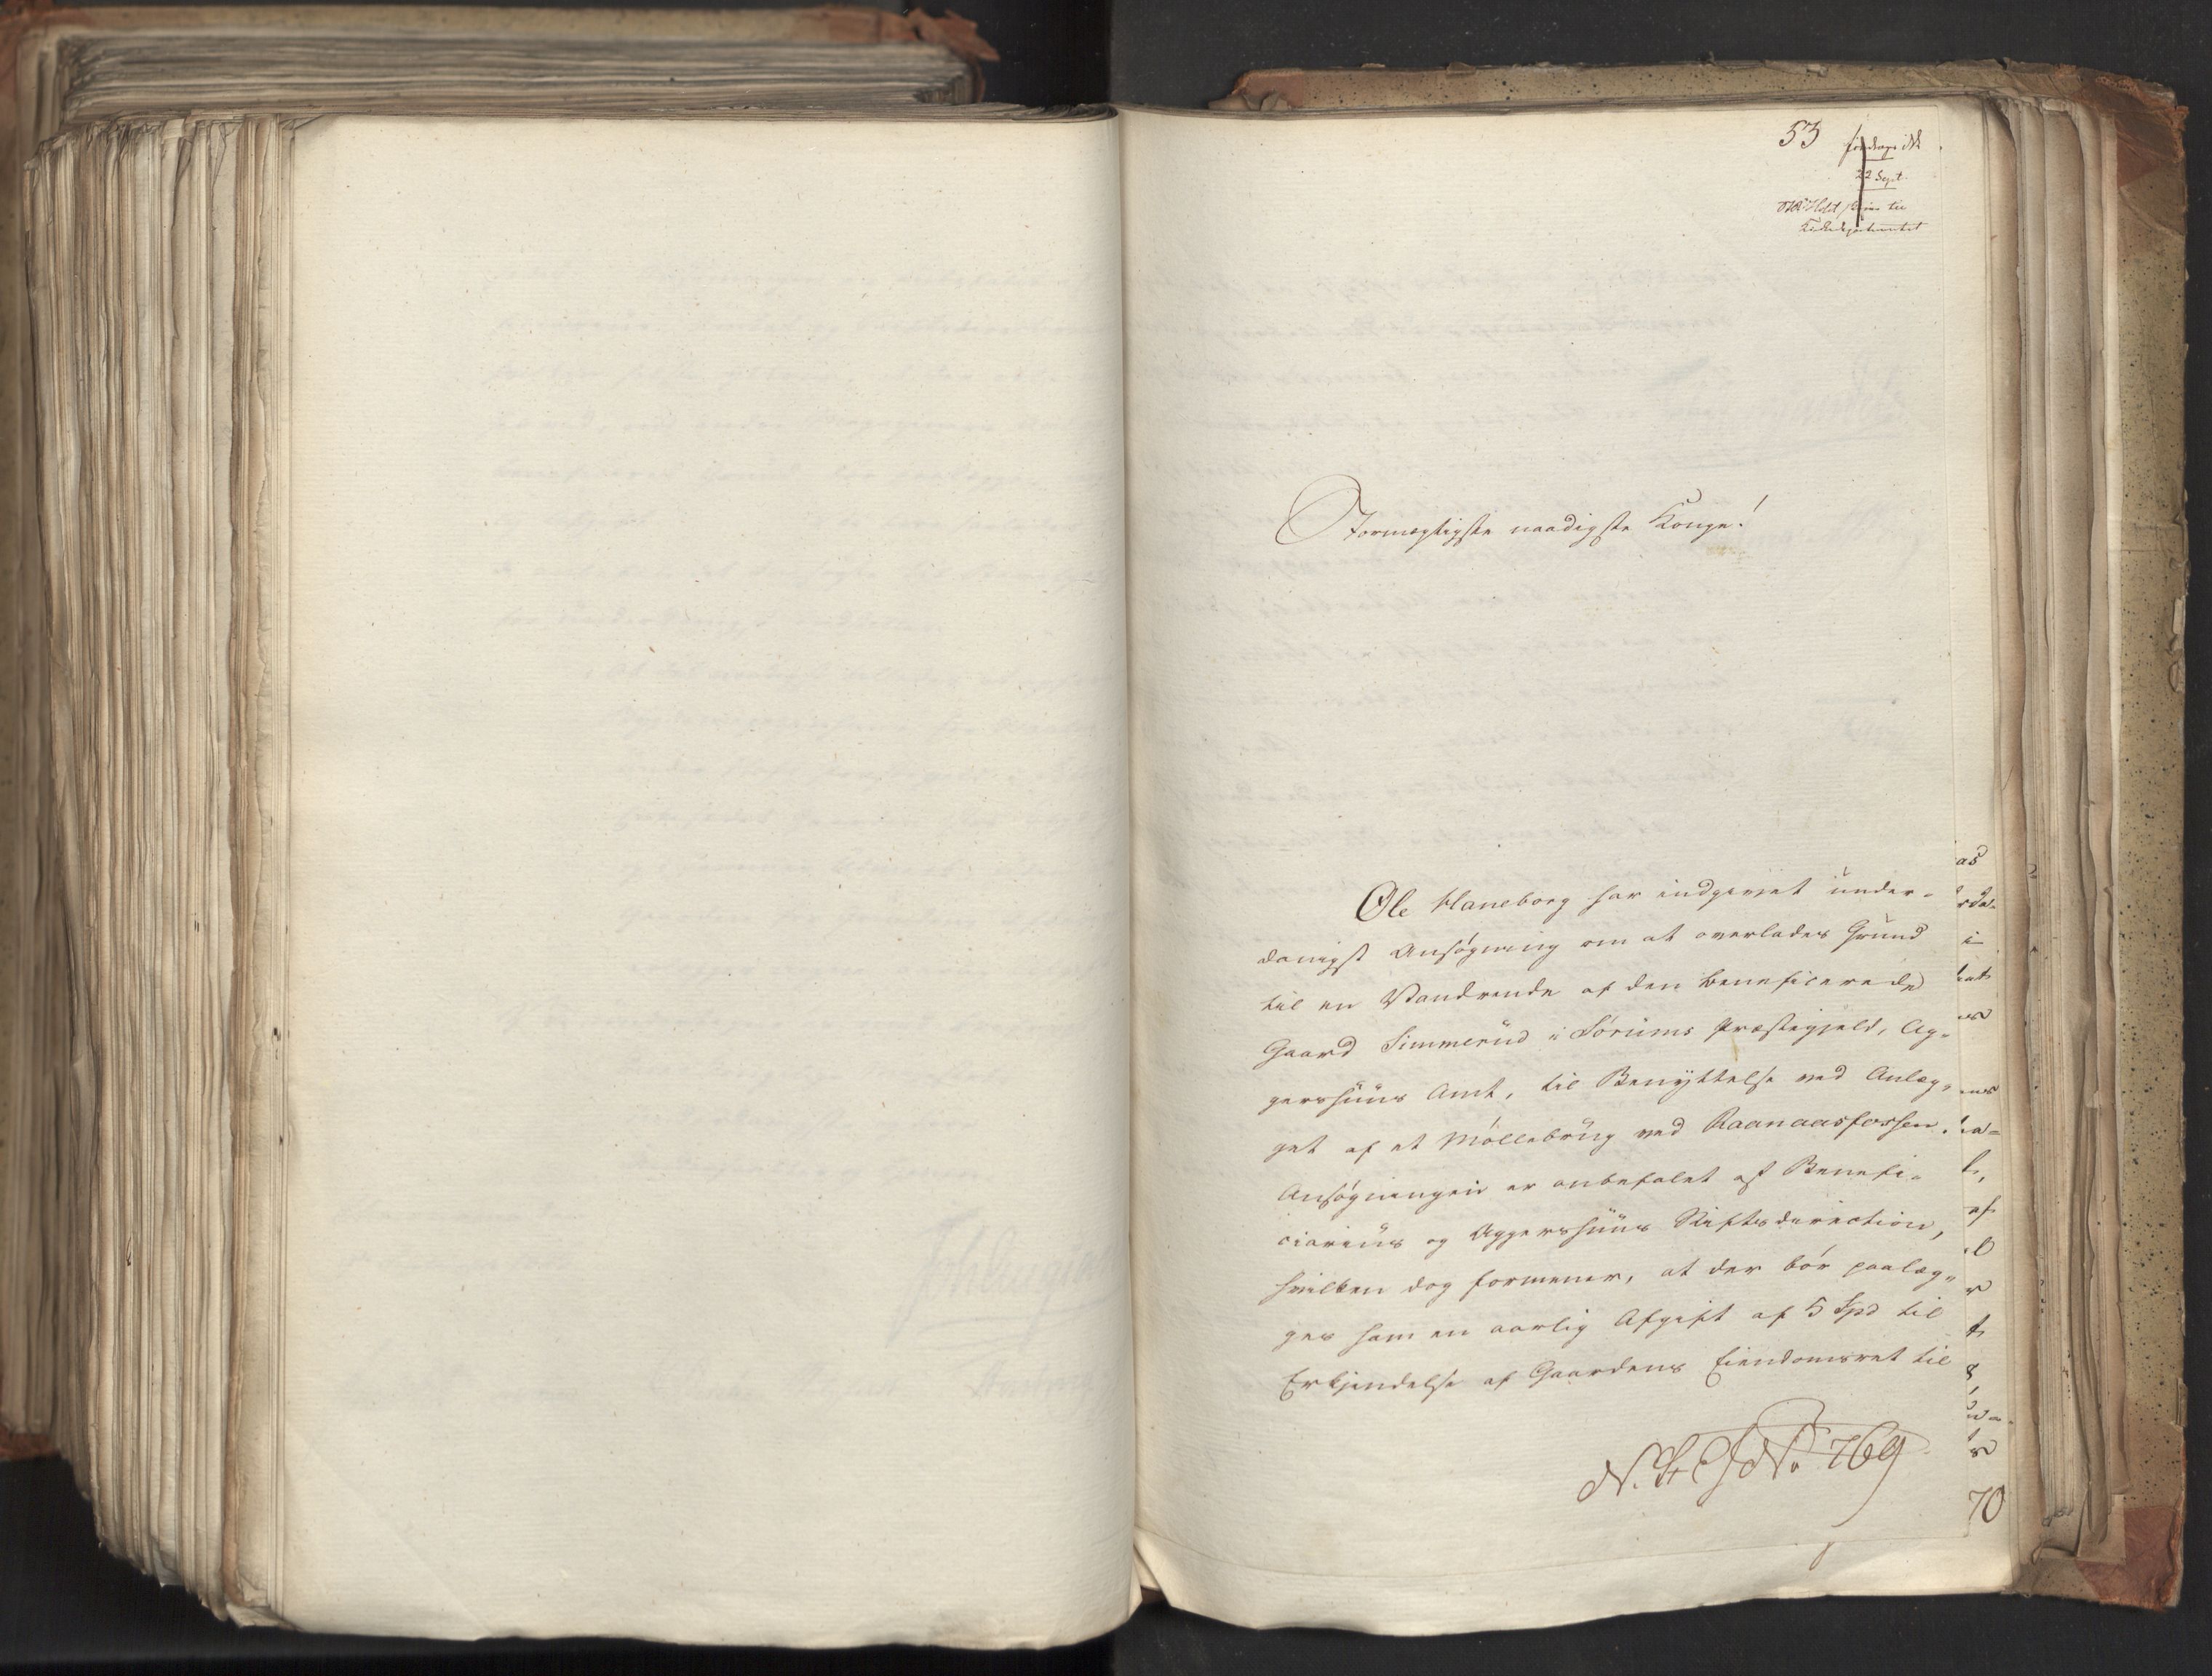 53
foredrages ikke
22 Sept.
til
Kirkedepartementet
Stormægtigste naadigste Konge!
Ole Haneborg har indgivet under-
danigst Ansøgning om at overlades Grund
til en Vandrende af den beneficerede
Gaard Simmerud i Sørums Præstegjeld, Ag-
gershuus Amt, til Benyttelse ved Anlæg-
get af et Møllebrug ved Raanaasfossen.
Ansøgningen er anbefalet af Benefi-
ciarius og Aggershuus Stiftsdirection,
hvilken dog formener, at der bør paalæg-
ges ham en aarlig Afgift af 5 Spd til
Erkjendelse af Gaardens Eiendomsret til
N. St. J. No 769
70